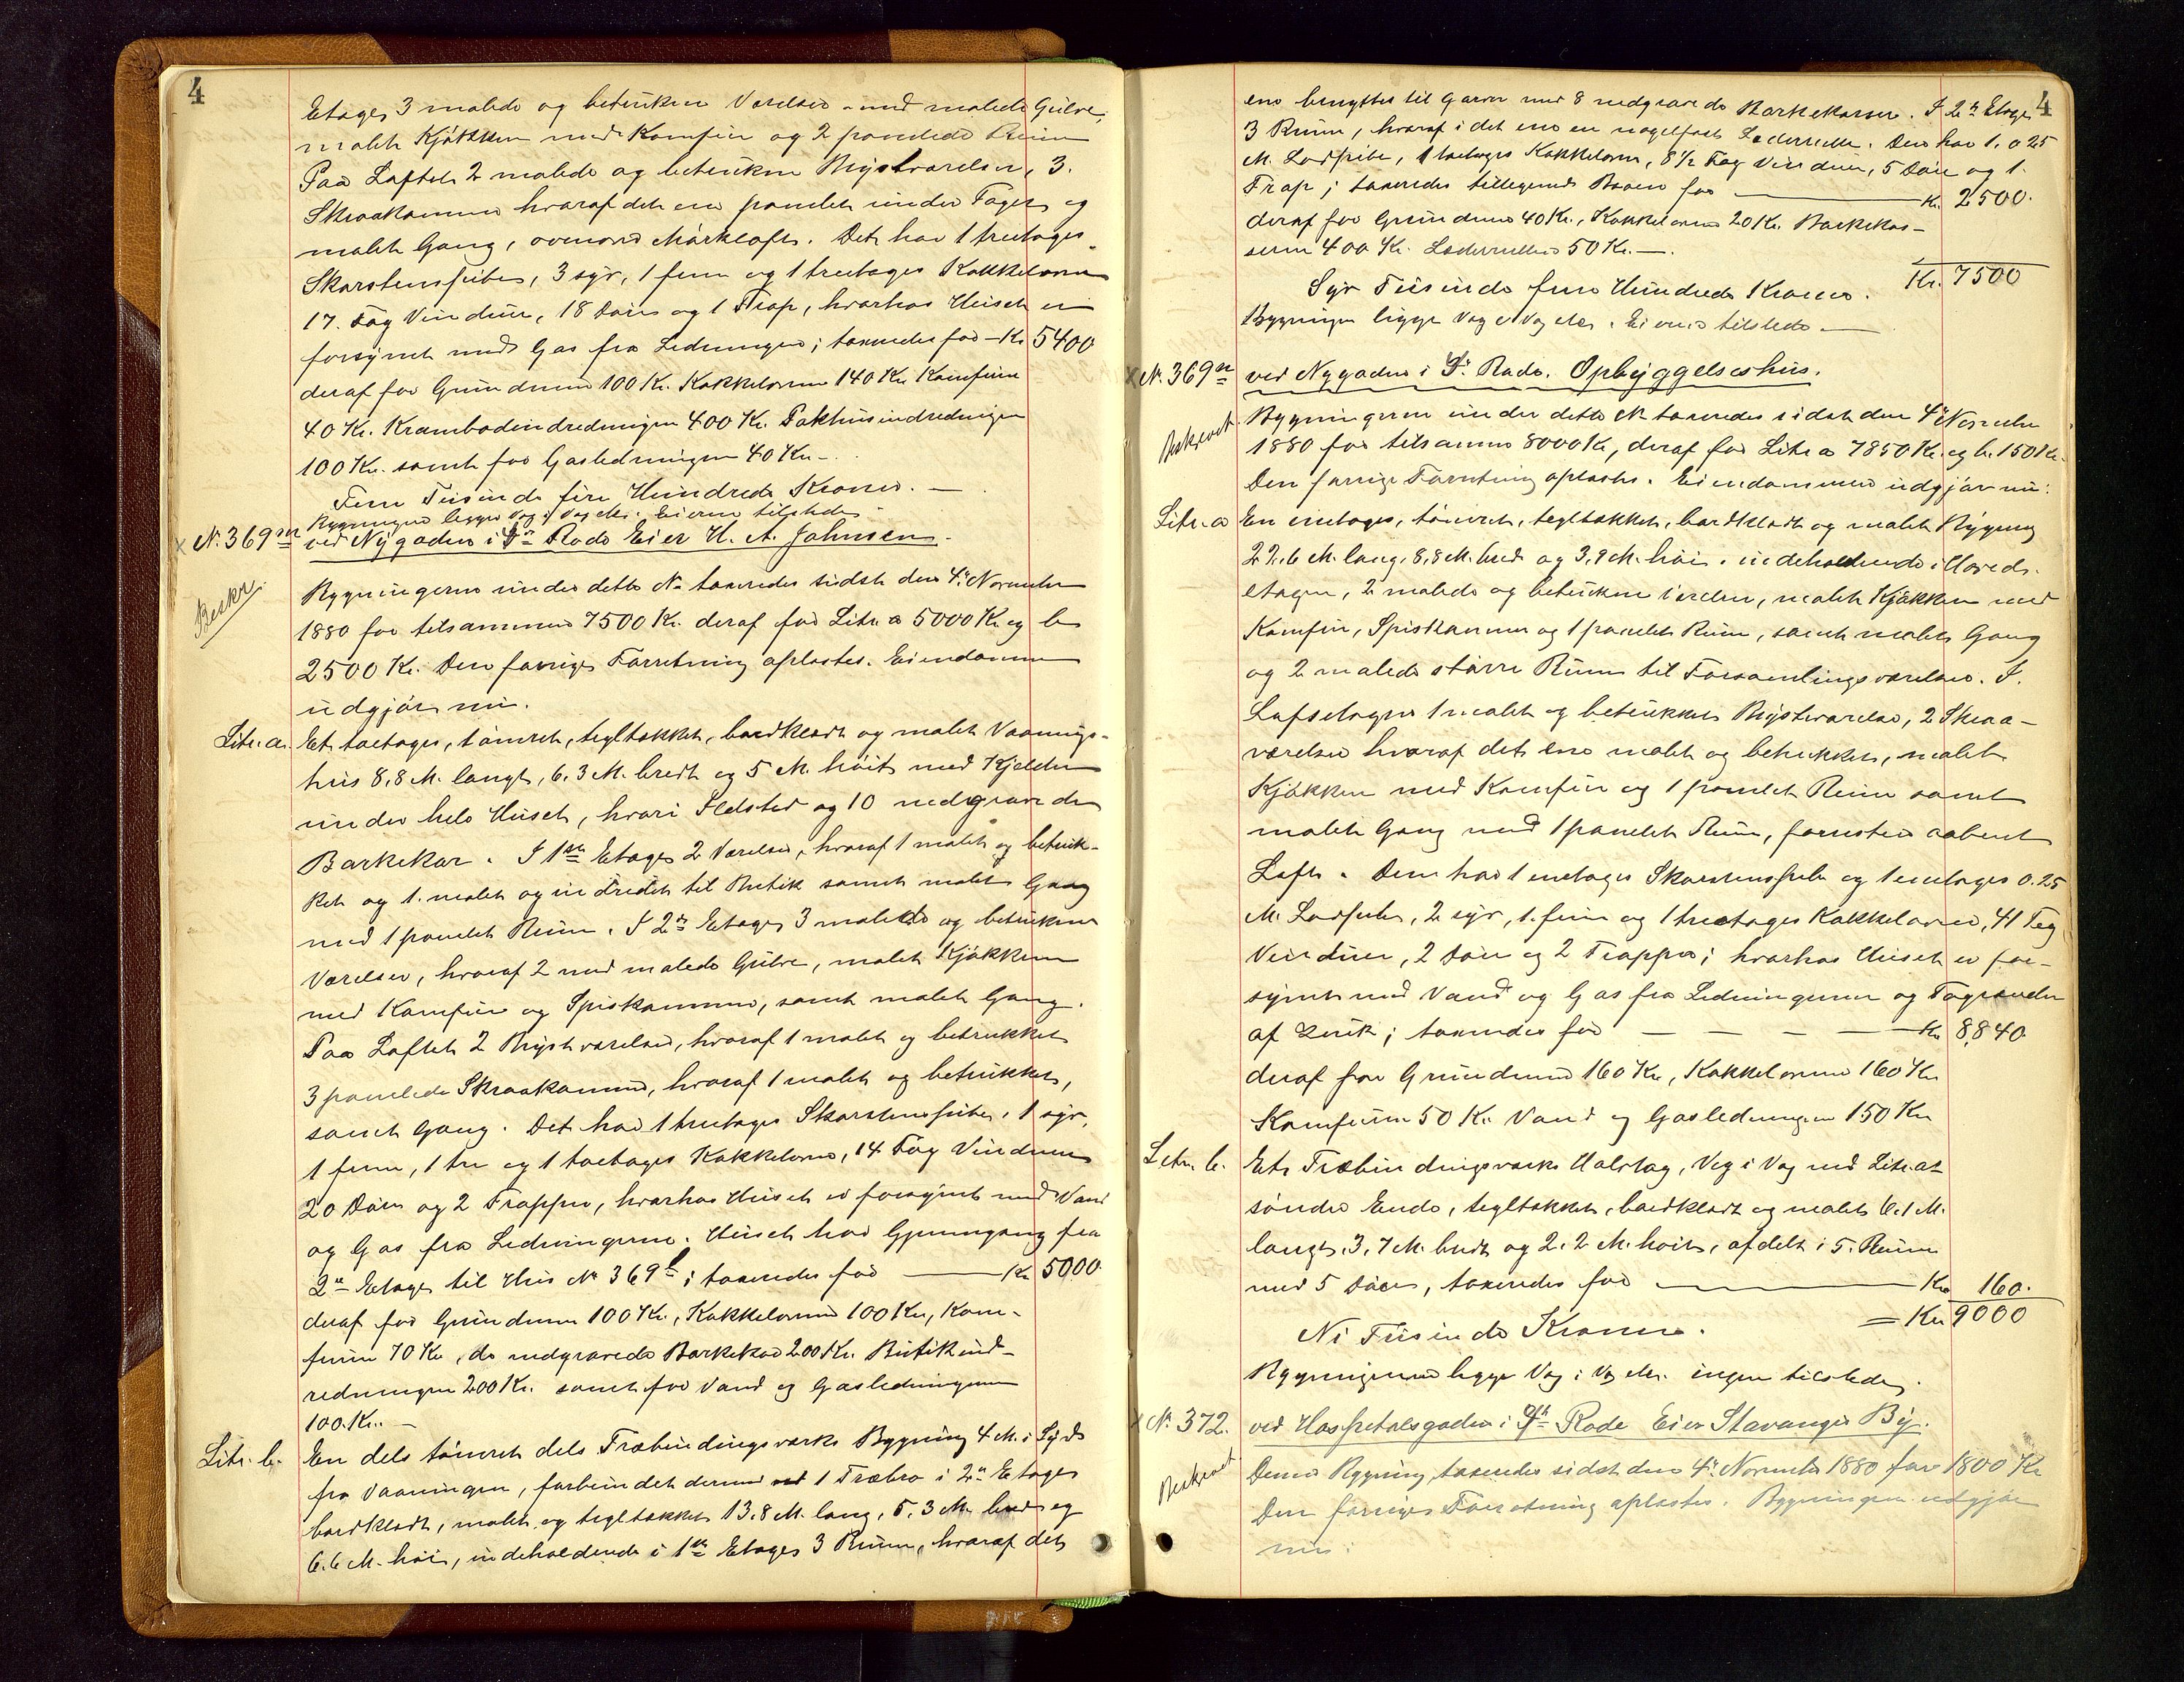 4
Etages 3 malede og betrukne Værelser med malede Gulve,
malet Kjøkken med Komfur og 2 panelede Rum
Paa Loftet 2 malede og betrukne Kvistværelser, 3.
Skraakammere hvoraf det ene panelet under Taget og
malet Gang, ovenover Mørkloft. Det har 1 treetages
Skorstenspibe, 3 syv, 1 fem og 1 treetages Kakkelovne
17. Fag Vinduer, 18 Døre og 1 Trap, hvorhos Huset er
forsynet med Gas fra Ledningen; taxeredes for – Kr 5400
deraf for Grundmuren 100 Kr. Kakkelovnene 140 Kr Komfuren
40 Kr. Krambodindredningen 400 Kr. Pakhusindredningen
100 Kr. samt for Gasledningen 40 Kr –.
Fem Tusinde fire Hundrede Kroner. –
Bygningen ligger Væg i Væg etc. Eieren tilstede
x No. 369 m ved Nygaden i Rode Eier H. A. Johnsen.
Beskr.
Bygningerne under dette No taxeredes sidst den 4de November
1880 for tilsammen 7500 Kr. deraf for Litr. a 5000 Kr og b
2500 Kr. Den forrige Forretning oplæstes. Eiendommen
udgjør nu.
Litr. a. Et toetages, tømret, tegltækket, bordklædt og malet Vaanings-
hus 8,8 M. langt, 6.3 M. bredt og 5 M. høit med Kjelder
under hele Huset, hvori Ildsted og 10 nedgravede
Barkekar. I 1ste Etage 2 Værelser, hvoraf 1 malet og betruk-
ket og 1. malet og indredet til Butik samt malet Gang
med 1 panelet Rum. I 2den Etage 3 malede og betrukne
Værelser, hvoraf 2 med malede Gulve, malet Kjøkken
med Komfur og Spiskammer, samt malet Gang.
Paa Loftet 2 Kvistværelser, hvoraf 1 malet og betrukket
3 panelede Skraakammer, hvoraf 1 malet og betrukket,
samt Gang. Det har 1 treetages Skorstenspibe, 1 syv,
1 fem, 1 tre og 1 toetages Kakkelovne, 14 Fag Vinduer
20 Døre og 2 Trapper, hvorhos Huset er forsynet med Vand
og Gas fra Ledningerne. Huset har Gjennemgang fra
2den Etage til Hus No 369 l; taxeredes for — Kr 5000
deraf for Grundmuren 100 Kr., Kakkelovnene 100 Kr, Kom-
furen 70 Kr, de nedgravede Barkekar 200 Kr. Butikind-
redningen 200 Kr. samt for Vand og Gasledningerne
100. Kr. –
Litr. b. En dels tømret dels Træbindingsværks Bygning 4 M. i Syd
fra Vaaningen, forbundet dermed ved 1 Træbro i 2den Etage
bordklædt, malet og tegltækket 13.8 M. lang, 5.3 M. bred og
6.6 M. høi, indeholdende i 1ste Etage 3 Rum, hvoraf det
4
ene benyttes til Garveri med 8 nedgravede Barkekasser. I 2den Etage
3 Rum, hvoraf i det ene en nagelfast Læderrulle. Den har 1. 0.25
M. Lodpibe, 1 toetages Kakkelovn, 8 1/2 Fag Vinduer, 5 Døre og 1.
Trap; taxeredes tilligemed Broen for — Kr. 2500.
deraf for Grundmuren 40 Kr., Kakkelovnen 20 Kr. Barkekas-
serne 400 Kr. Læderrullen 50 Kr. —.
Kr. 7500
Syv Tusinde fem Hundrede Kroner.
Bygningen ligger Væg i Væg etc. Eieren tilstede. —
x No. 369 n ved Nygaden i Rode. Opbyggelseshus.
Beskrevet
Bygningerne under dette No taxeredes sidst den 4de November
1880 for tilsammen 8000 Kr, deraf for Litr a 7850 Kr. og b. 150 Kr.
Den forrige Forretning oplæstes. Eiendommen udgjør nu:
Litr. a En enetages, tømret, tegltækket, bordklædt og malet Bygning
22.6 M. lang, 8,8 M. bred og 3,9 M. høi, indeholdende i Hoved-
etagen, 2 malede og betrukne Værelser, malet Kjøkken med
Komfur, Spiskammer og 1 panelet Rum, samt malet Gang
og 2 malede større Rum til Forsamlingsværelser. I.
Loftsetagen 1 malet og betrukket Kvistværelse, 2 Skraa-
værelser hvoraf det ene malet og betrukket, malet
Kjøkken med Komfur og 1 panelet Rum samt
malet Gang med 1 panelet Rum, forresten aabent
Loft. Den har 1 enetages Skorstenspibe og 1 enetages 0.25
M. Lodpibe, 2 syv, 1. fem og 1 treetages Kakkelovne, 41 Fag
Vinduer, 2 Døre og 2 Trapper; hvorhos Huset er for-
synet med Vand og Gas fra Ledningerne og Tagrender
af Zink; taxeredes for — — — — Kr 8,840
deraf for Grundmuren 160 Kr, Kakkelovnene 160 Kr
Komfurene 50 Kr. Vand og Gasledningen 150 Kr
Litr. b. Et Træbindingsværks Halvtag, Væg i Væg med Litr. as
søndre Ende, tegltækket, bordklædt og malet 6.1 M.
langt, 3,7 M. bredt og 2.2 M. høit, afdelt i 5. Rum
med 5 Døre, taxeredes for — Kr 160.
= Kr 9000
Ni Tusinde Kroner.
Bygningerne ligger Væg i Væg etc. ingen tilstede.
x No. 372. ved Hospitalsgaden i Rode Eier Stavanger By.
Beskrevet
Denne Bygning taxeredes sidst den 4de November 1880 for 1800 Kr
Den forrige Forretning oplæstes. Bygningen udgjør
nu: